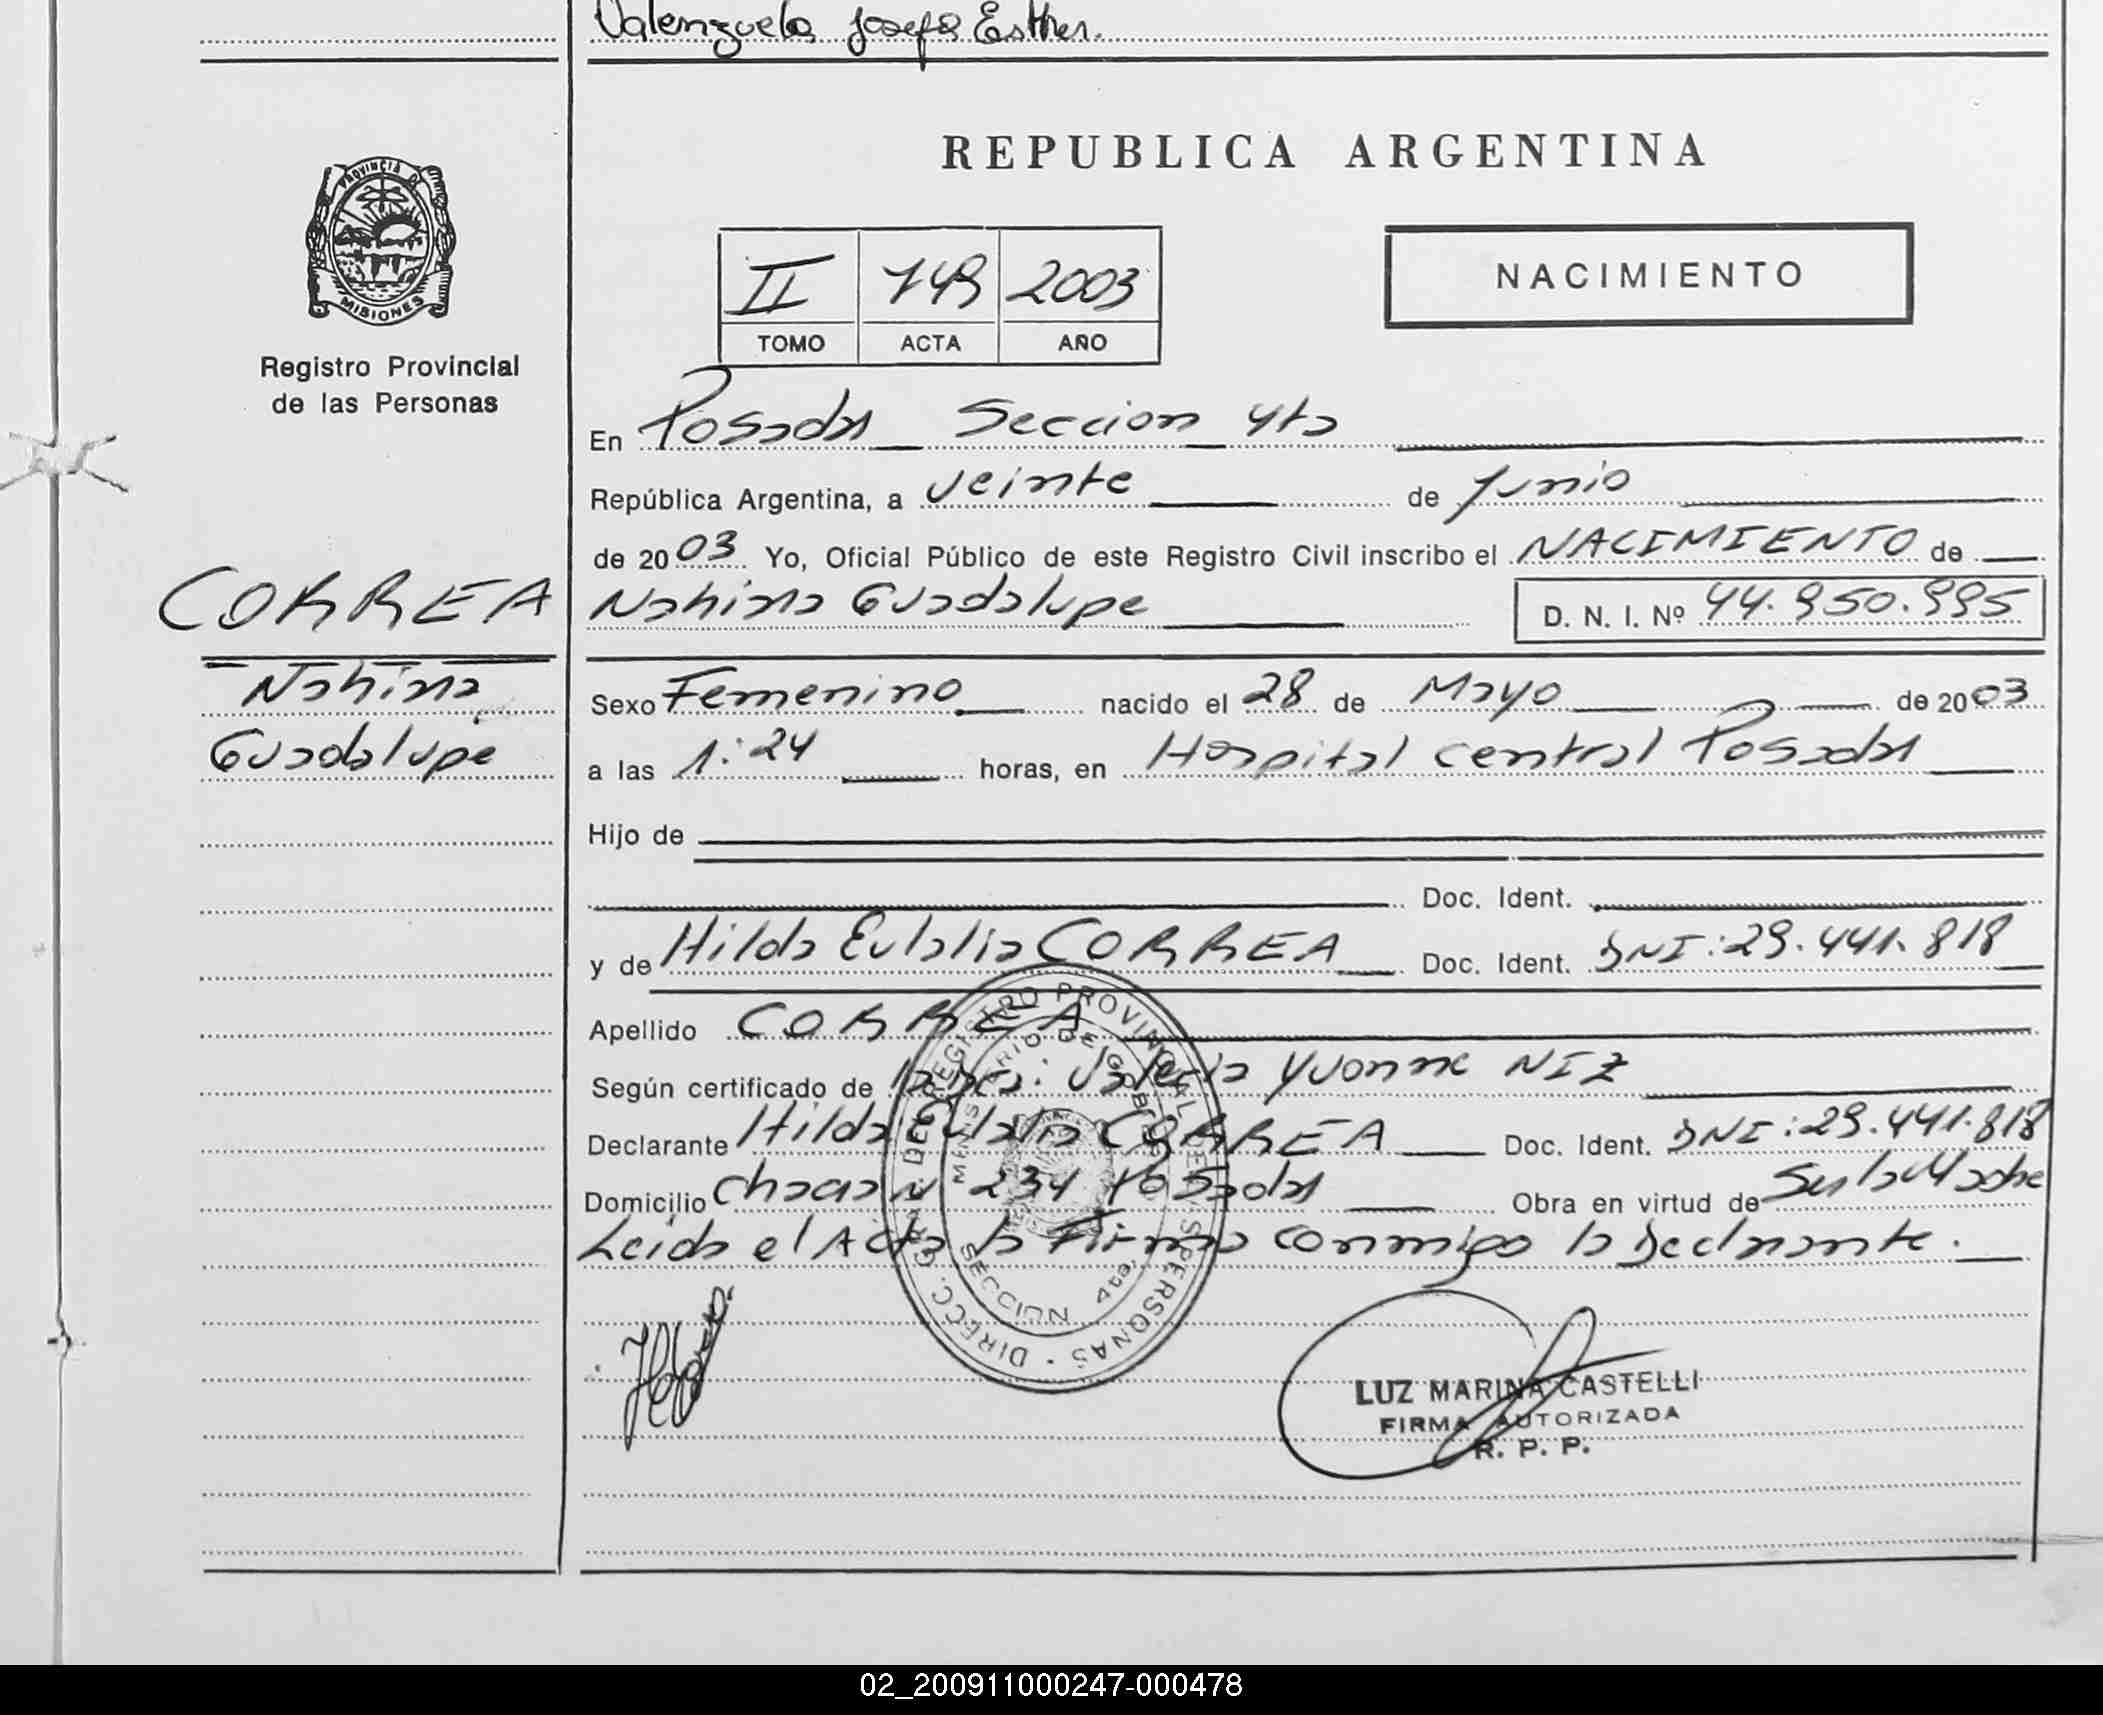 Valenzuela, Josefa Esther.
REPUBLICA ARGENTINA
PROVINCIA DE MISIONES
Registro Provincial
de las Personas
II 749 2003
TOMO ACTA AÑO
NACIMIENTO
En Posadas Seccion 4ta
República Argentina, a veinte de Junio
de 2003 Yo, Oficial Público de este Registro Civil inscribo el NACIMIENTO de
CORREA
Nahiana Guadalupe D. N. I. Nº 44.950.995
Nahiana
Guadalupe
Sexo Femenino nacido el 28 de Mayo de 2003
a las 1:24 horas, en Hospital central Posadas
Hijo de
Doc. Ident.
y de Hilda Eulalia CORREA Doc. Ident. DNI: 29.441.818
Apellido CORREA
Según certificado de Valeria Yvonne NIZ
Declarante Hilda Eulalia CORREA Doc. Ident. DNI: 29.441.818
Domicilio Chacra Nº 234 Posadas Obra en virtud de Ser la Madre
Leida el Acta la Firma conmigo la Declarante.
DIRECC. GRAL. DEL REGISTRO PROVINCIAL DE LAS PERSONAS
MINISTERIO DE GOBIERNO
SECCION 4ta.
LUZ MARINA CASTELLI
FIRMA AUTORIZADA
R. P. P.
02_200911000247-000478